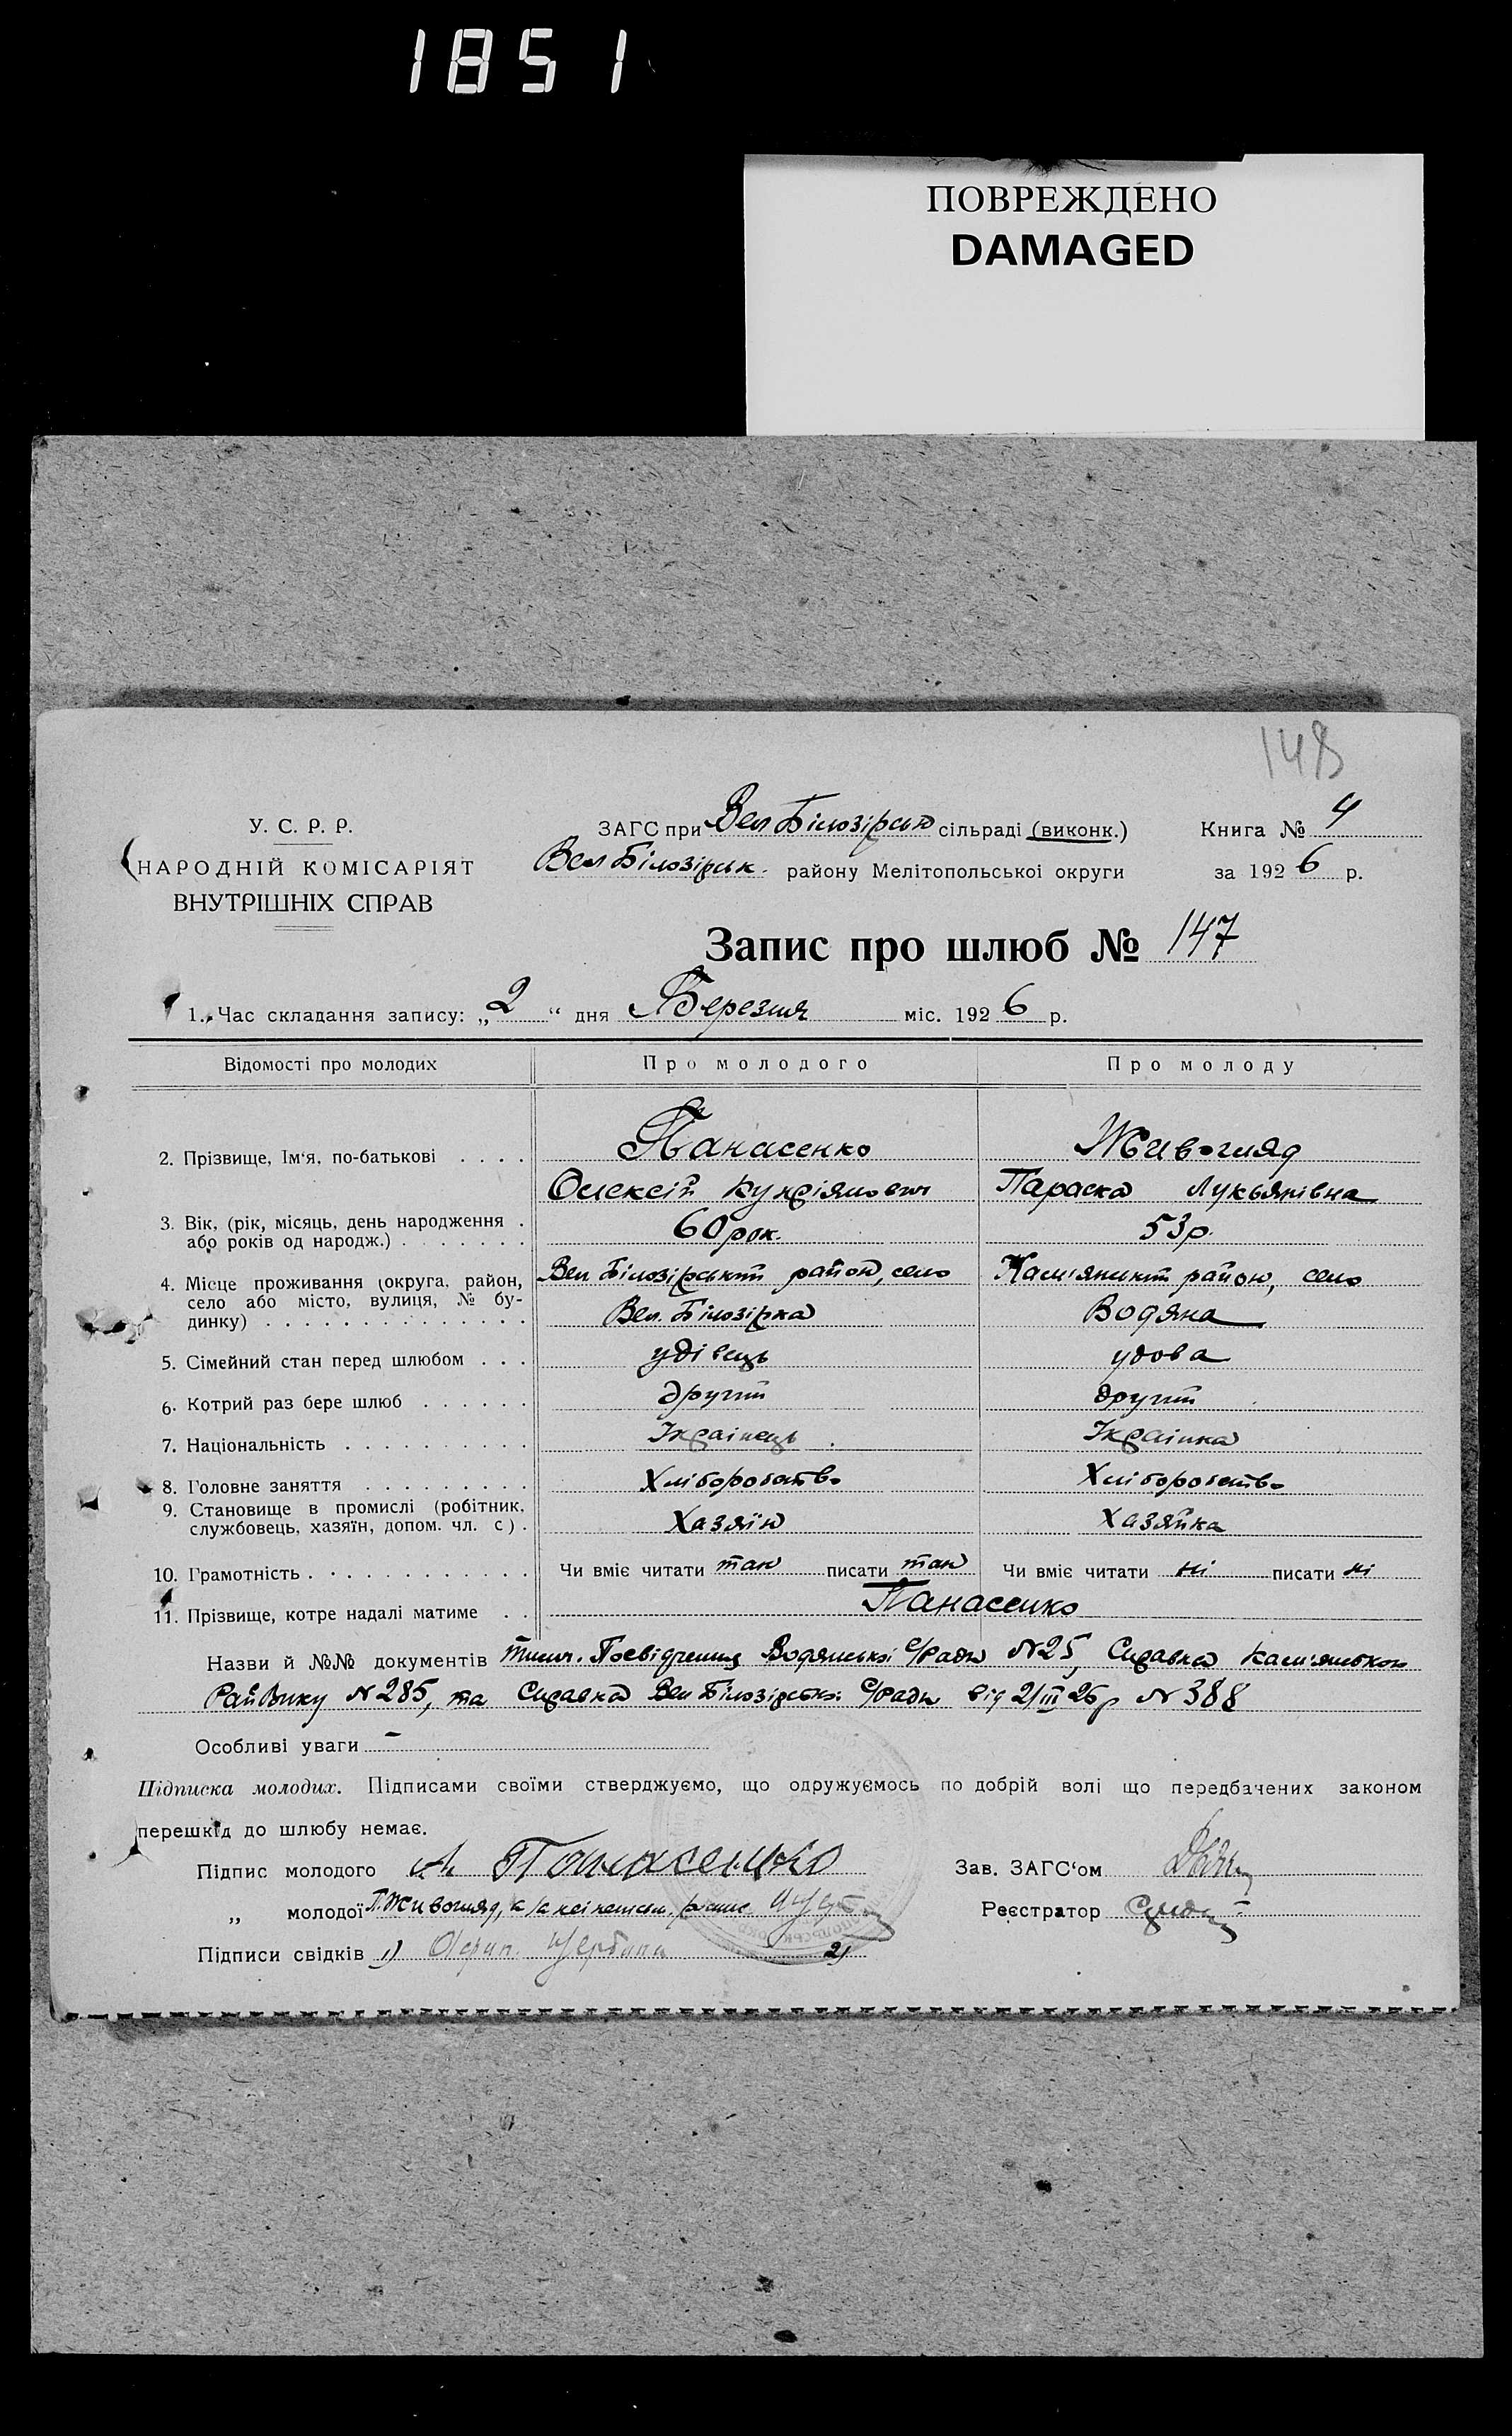 1851
ПОВРЕЖДЕНО
DAMAGED
148
У. С. Р. Р.
НАРОДНІЙ КОМІСАРІЯТ
ВНУТРІШНІХ СПРАВ
ЗАГС при Вел Білозірськ сільраді (виконк.)
Вел Білозірськ. району Мелітопольської округи
Книга № 4
за 1926 р.
Запис про шлюб № 147
1. Час складання запису: „2“ дня Березня міс. 1926 р.
Відомості про молодих Про молодого Про молоду
2. Прізвище, Ім'я, по-батькові . . . . Панасенко Живогляд
Олексій Купріянович Параска Лукьянівна
3. Вік, (рік, місяць, день народження . 60 рок. 53 р.
або років од народж.) . . . . . . .
4. Місце проживання (округа, район, Вел Білозірський район, село Кам'янський район, село
село або місто, вулиця, № бу-
динку) . . . . . . . . . . . . . . Вел. Білозірка Водяна
5. Сімейний стан перед шлюбом . . . удівець удова
6. Котрий раз бере шлюб . . . . . . другий другий
7. Національність . . . . . . . . . . Українець Українка
8. Головне заняття . . . . . . . . . Хліборобство Хліборобство
9. Становище в промислі (робітник,
службовець, хазяїн, допом. чл. с) . Хазяїн Хазяйка
10. Грамотність . . . . . . . . . . . . Чи вміє читати так писати так Чи вміє читати ні писати ні
11. Прізвище, котре надалі матиме . . Панасенко
Назви й №№ документів Посвідчення Водянської с/ради N 25, Справка Кам'янського
РайВику N 285, та Справка Вел Білозірської с/ради від 2/III 26 р N 388
Особливі уваги –
Підписка молодих. Підписами своїми стверджуємо, що одружуємось по добрій волі що передбачених законом
перешкід до шлюбу немає.
Підпис молодого А Панасенко Зав. ЗАГС'ом
„ молодої П. Живогляд, а за неї Реєстратор
Підписи свідків 1) Щербина 2)